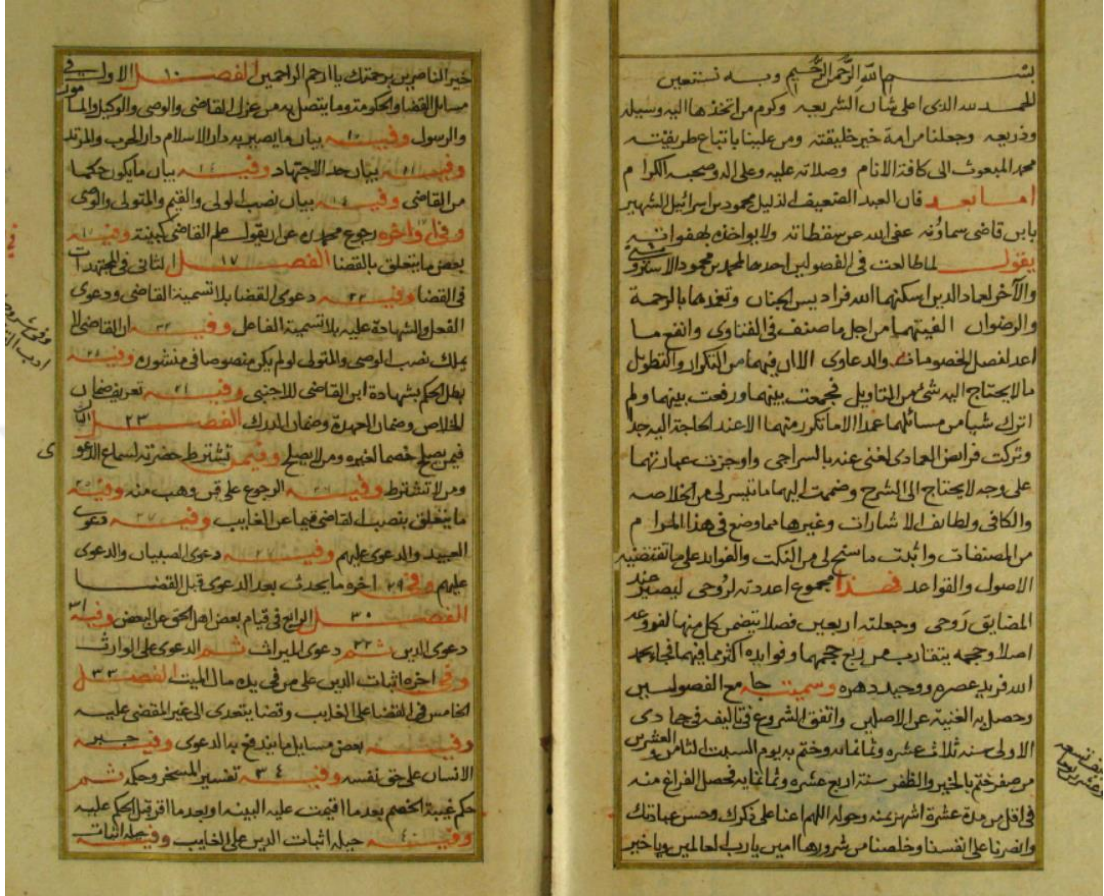 بسم الله الرحمن الرحيم وبه نستعين
الحمد لله الذى اعلى شان الشريعه وكرم من اتخذها اليه وسيلة
وذريعه وجعلنا من امة خير خليقته ومن علينا باتباع طريقته
محمد المبعوث الى كافة الانام وصلاته عليه وعلى اله وصحبه الكرام
اما بعد فان العبد الضعيف الذليل محمود بن اسرائيل الشهير
بابن قاضى سماونه عفى الله عن سقطاته ولا يواخذه بهفواته
يقول لما طالعت فى الفصولين احدهما لمحمد بن محمود الاستروشنى
والآخر لعماد الدين اسكنهما الله فراديس الجنان وتغمدهما بالرحمة
والرضوان الفيتهما من اجل ما صنف فى الفتاوى وانفع ما
اعد لفصل الخصومات والدعاوى الا ان فيهما من التكرار والتطويل
ما لا يحتاج اليه شئ من التاويل فجمعت بينهما ورفعت بينهما ولم
اترك شيا من مسائلهما عمدا الا ما تكرر منهما الا عند الحاجة اليه جدا
وتركت فرايض العمادى لغنى عنه بالسراجى واوجزت عبارتهما
على وجه لا يحتاج الى الشرح وضممت اليهما ما تيسر لى من الخلاصه
والكافى ولطايف الاشارات وغيرها مما وضع فى هذا المرام
من المصنفات واثبت ما سنح لى من النكت والفوايد على ما تقتضيه
الاصول والقواعد فهذا مجموع اعددته لروحى ليصير عند
المضايق روحى وجعلته اربعين فصلا يتضمن كل منها لفروعه
اصلا وحجمه يتقارب من ربع حجمهما وفوايده اكثر مما فيهما فجاء بحمد
الله فريد عصره ووحيد دهره وسميته جامع الفصولين
وحصل به الغنية عن الاصلين واتفق الشروع فى تاليفه فى جمادى
الاولى سنه ثلاث عشره وثمانمائه وختم به يوم السبت الثامن والعشرين
من صفر ختم بالخير والظفر سنة اربع عشره وثمانمايه فحصل الفراغ منه
فى اقل من مدة عشرة اشهر بمنه وحوله اللهم اعنا على ذكرك وحسن عبادتك
وانصرنا على انفسنا وخلصنا من شرورها امين يا رب العالمين ويا خير
خير الناصرين برحمتك يا ارحم الراحمين الفصل ١٠ الاول فى
مسايل القضا والحكومة وما يتصل به من عزل القاضى والوصى والوكيل والمامور
والرسول وفيه ١٥ بيان ما يصير به دار الاسلام دار الحرب والمرتد
وفيه ١٥ بيان حد الاجتهاد وفيه ١٤ بيان ما يكون حكما
من القاضى وفيه ١٤ بيان نصب الولى والقيم والمتولى والوصى
وفى اخره رجوع محمد ره عن ان يقول علم القاضى كبينته وفيه
بعض ما يتعلق بالقضا الفصل ١٧ الثانى فى المجتهدات
فى القضا وفيه ٢٢ دعوى القضا بلا تسمية القاضى ودعوى
الفعل والشهادة عليه بلا تسمية الفاعل وفيه ٢٣ ان القاضى لا
يملك نصب الوصى والمتولى لو لم يكن منصوصا فى منشوره وفيه
بطل الحكم بشهادة ابن القاضى للاجنبى وفيه ٢٤ تعريف ضمان
الخلاص وضمان العهدة وضمان الدرك الفصل ٢٣ الثالث
فيمن يصلح خصما لغيره ومن لا يصلح وفيمن تشترط حضرته لسماع الدعوى
ومن لا تشترط وفيه الرجوع على قن وهب منه وفيه ٢٥
ما يتعلق بنصب القاضى قيما عن الغايب وفيه ٢٧ دعوى
العبيد والدعوى عليهم وفيه ٢٧ دعوى الصبيان والدعوى
عليهم وفى ٢٩ اخره ما يحدث بعد الدعوى قبل القضا
الفصل ٣٠ الرابع فى قيام بعض اهل الحق عن البعض وفيه ٣١
دعوى الدين ثم ٣٢ دعوى الميراث ثم الدعوى على الوارث
وفى اخره اثبات الدين على من فى يده مال الميت الفصل ٣٣
الخامس فى القضا على الغايب وقضا يتعدى الى غير المقضى عليه
وفيه بعض مسايل ما يندفع به الدعوى وفيه جبر
الانسان على حق نفسه وفيه ٣٤ تفسير المسخر وحكمه ثم
حكم غيبة الخصم بعدما اقيمت عليه البينه او بعدما اقر قبل الحكم عليه
وفيه ٤٠ حيلة اثبات الدين على الغايب وفيه حيلة اثبات